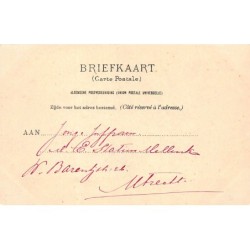 BRIEFKAART.
(Carte Postale)
ALGEMEENE POSTVEREENIGING (UNION POSTALE UNIVERSELLE).
Zijde voor het adres bestemd. (Côté réservé à l'adresse.)
AAN Jonge Juffrouw
E. Statius Mullink
W. Barentzstr.
Utrecht